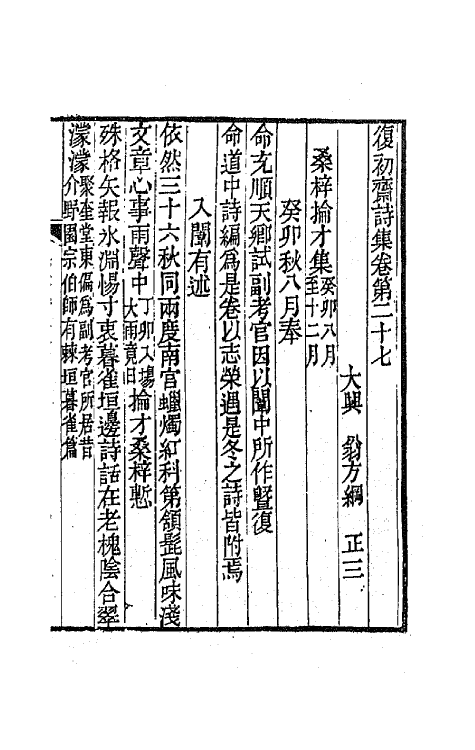 復初齋詩集卷第二十七
大興　翁方綱　正三
桑梓掄才集癸卯八月至十二月
癸卯秋八月奉
命充順天鄉試副考官因以闈中所作暨復
命道中詩編為是卷以志榮遇是冬之詩皆附焉
入闈有述
依然三十六秋同兩度南宮蠟燭紅科第頷髭風味淺
文章心事雨聲中丁卯入場大雨竟日掄才桑梓慙
殊格矢報氷淵惕寸衷暮雀垣邊詩話在老槐陰合翠
濛濛聚奎堂東偏為副考官所居昔介野園宗伯師有棘垣暮雀篇